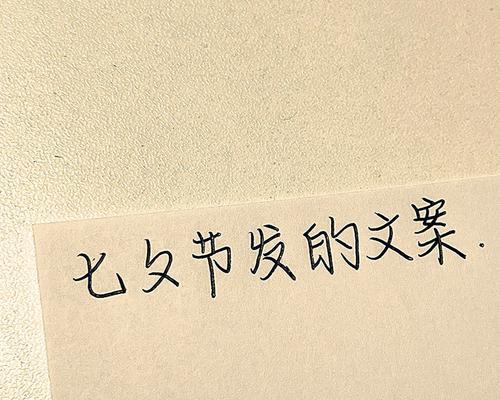 七夕节发的文案.